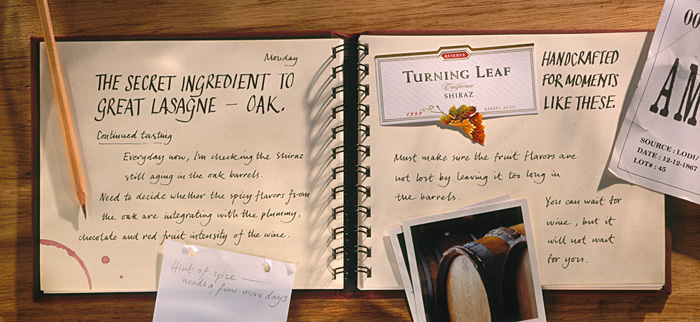 Monday
THE SECRET INGREDIENT TO
GREAT LASAGNE — OAK.
Continued tasting
Everyday now, I'm checking the Shiraz
still aging in the oak barrels.
Need to decide whether the spicy flavors from
the oak are integrating with the plummy,
chocolate and red fruit intensity of the wine.
Hint of spice —
needs a few more days
RESERVE
TURNING LEAF
California
SHIRAZ
1999
BARREL AGED
HANDCRAFTED
FOR MOMENTS
LIKE THESE.
Must make sure the fruit flavors are
not lost by leaving it too long in
the barrels.
You can wait for
wine, but it
will not wait
for you.
AM
SOURCE : LODI/
DATE : 12-12-1867
LOT# : 45